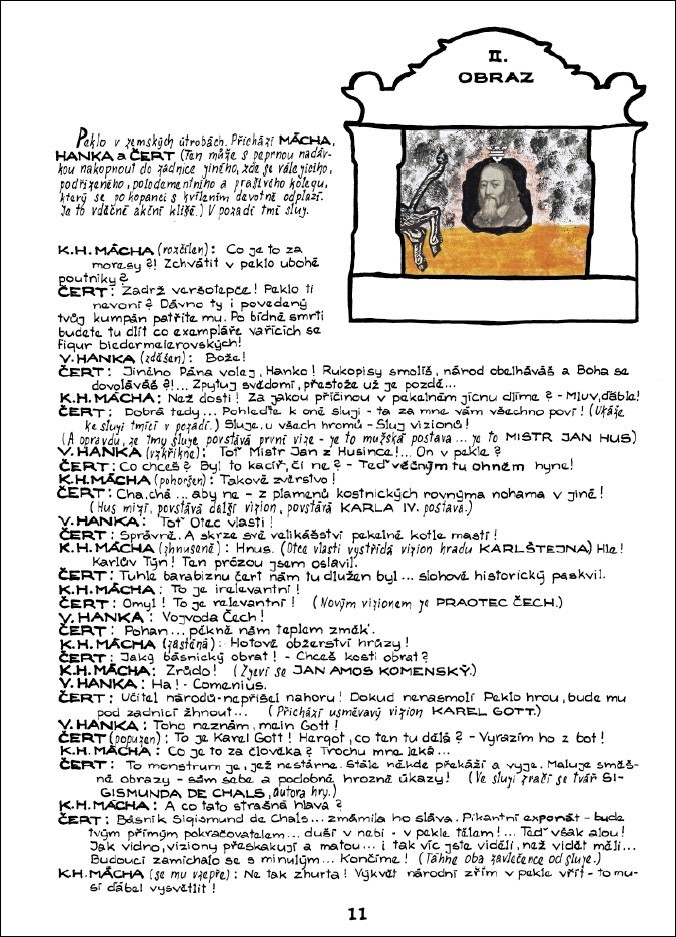 II.
OBRAZ
Peklo v zemských útrobách. Přichází MÁCHA,
HANKA a ČERT (Ten může s peprnou nadáv-
kou nakopnout do zadnice jiného, zde se válejícího,
podřízeného, polodementního a prašivého kolegu,
který se po kopanci s kvílením devotně odplazí.
Je to vděčné akční klišé.) V pozadí tmí sluj.
K.H. MÁCHA (rozčílen): Co je to za
moresy?! Zchvátit v peklo ubohé
poutníky?
ČERT: Zadrž veršotepce! Peklo ti
nevoní? Dávno ty i povedený
tvůj kumpán patříte mu. Po bídné smrti
budete tu dlít co exempláře vařících se
figur biedermeierovských!
V. HANKA (zděšen): Bože!
ČERT: Jiného Pána volej, Hanko! Rukopisy smolíš, národ obelháváš a Boha se
dovoláváš?!... Zpytuj svědomí, přestože už je pozdě...
K.H. MÁCHA: Než dosti! Za jakou příčinou v pekelném jícnu dlíme? - Mluv, ďáble!
ČERT: Dobrá tedy... Pohleďte k oné sluji - ta za mne vám všechno poví! (Ukáže
ke sluji tmící v pozadí.) Sluje, u všech hromů - Sluj vizionů!
(A opravdu, ze tmy sluje povstává první vize - je to mužská postava... je to MISTR JAN HUS)
V. HANKA (vzkřikne): Toť Mistr Jan z Husince!... On v pekle?
ČERT: Co chceš? Byl to kacíř, či ne? - Teď věčným tu ohněm hyne!
K.H. MÁCHA (pohoršen): Takové zvěrstvo!
ČERT: Cha, chá... aby ne - z plamenů kostnických rovnýma nohama v jiné!
(Hus mizí, povstává další vizion, povstává KARLA IV. postava.)
V. HANKA: Toť Otec vlasti!
ČERT: Správně. A skrze své velikášství pekelné kotle mastí!
K.H. MÁCHA (zhnuseně): Hnus. (Otce vlasti vystřídá vizion hradu KARLŠTEJNA) Hle!
Karlův Týn! Ten prózou jsem oslavil.
ČERT: Tuhle barabiznu čert nám tu dlužen byl... slohově historický paskvil.
K.H. MÁCHA: To je irelevantní!
ČERT: Omyl! To je relevantní! (Novým vizionem je PRAOTEC ČECH.)
V. HANKA: Vojvoda Čech!
ČERT: Pohan... pěkně nám teplem změk'.
K.H. MÁCHA (zastěná): Hotové obžerství hrůzy!
ČERT: Jaký básnický obrat! - Chceš kosti obrat?
K.H. MÁCHA: Zrůdo! (Zjeví se JAN AMOS KOMENSKÝ.)
V. HANKA: Ha! - Comenius.
ČERT: Učitel národů - nepřišel nahoru! Dokud nenasmolí Peklo hrou, bude mu
pod zadnicí žhnout... (Přichází usměvavý vizion KAREL GOTT.)
V. HANKA: Toho neznám, mein Gott!
ČERT (popuzen): To je Karel Gott! Hergot, co ten tu dělá? - Vyrazím ho z bot!
K.H. MÁCHA: Co je to za člověka? Trochu mne leká...
ČERT: To monstrum je, jež nestárne. Stále někde překáží a vyje. Maluje směš-
né obrazy - sám sebe a podobné hrozné úkazy! (Ve sluji zračí se tvář SI-
GISMUNDA DE CHALS, autora hry.)
K.H. MÁCHA: A co tato strašná hlava?
ČERT: Básník Sigismund de Chals... zmámila ho sláva. Pikantní exponát - bude
tvým přímým pokračovatelem... duší v nebi - v pekle tělem!... Teď však alou!
Jak vidno, viziony přeskakují a matou... i tak víc jste viděli, než vidět měli...
Budoucí zamíchalo se s minulým... Končíme! (Táhne oba zavlečence od sluje.)
K.H. MÁCHA (se mu vzepře): Ne tak zhurta! Výkvět národní zřím v pekle vřít - to mu-
sí ďábel vysvětlit!
11